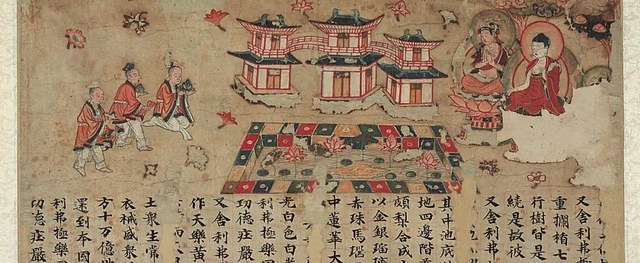 又舍利弗
重欄楯七
行樹皆是
繞是故彼
又舍利弗
其中池底
地四邊階
頗梨合成
以金銀瑠
赤珠馬瑙
中蓮華大
光白色白
利弗極樂
功德莊嚴
又舍利弗
作天樂黃
土衆生常
衣裓盛衆
方十万億
還到本國
利弗極樂
功德莊嚴